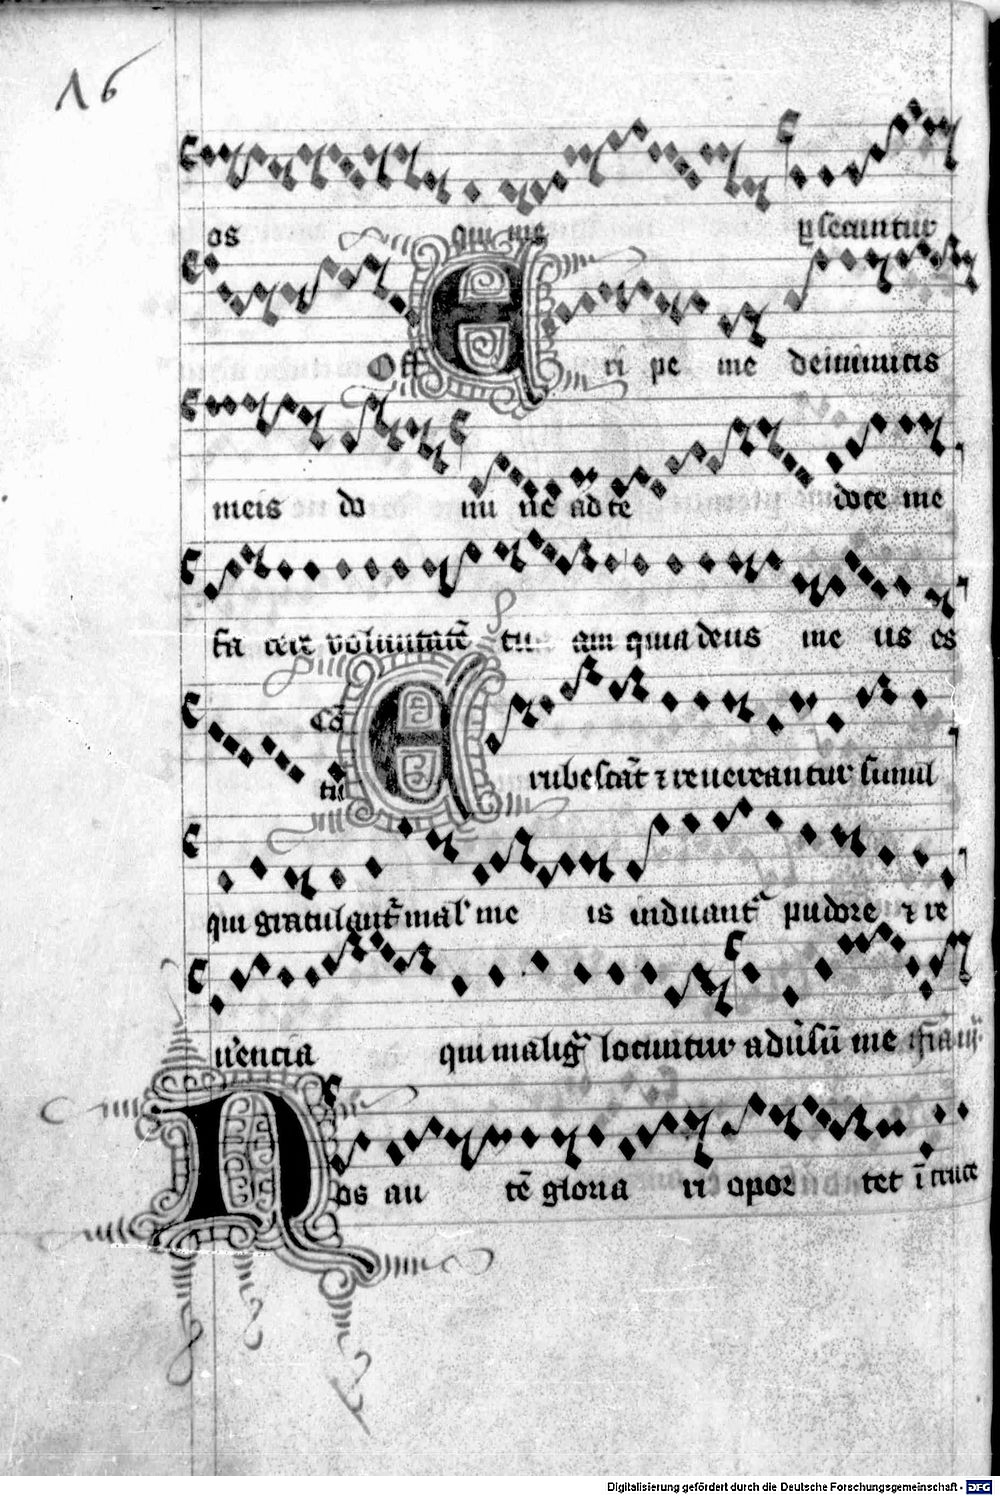 16
os qui me ꝑsecuntur
Off E ri pe me deinimicis
meis do mi ne ad te doce me
fa cere voluntatē tu am quia deus me us es
Cō E rubescāt ⁊ reuereantur simul
tū
qui gratulant᷑ mal᷒ me is induant᷑ pudore ⁊ re
u͛encia qui malig᷑ locuntur adu͛sū me
N os au tē gloria ri opor tet ī cruce
Digitalisierung gefördert durch die Deutsche Forschungsgemeinschaft - DFG